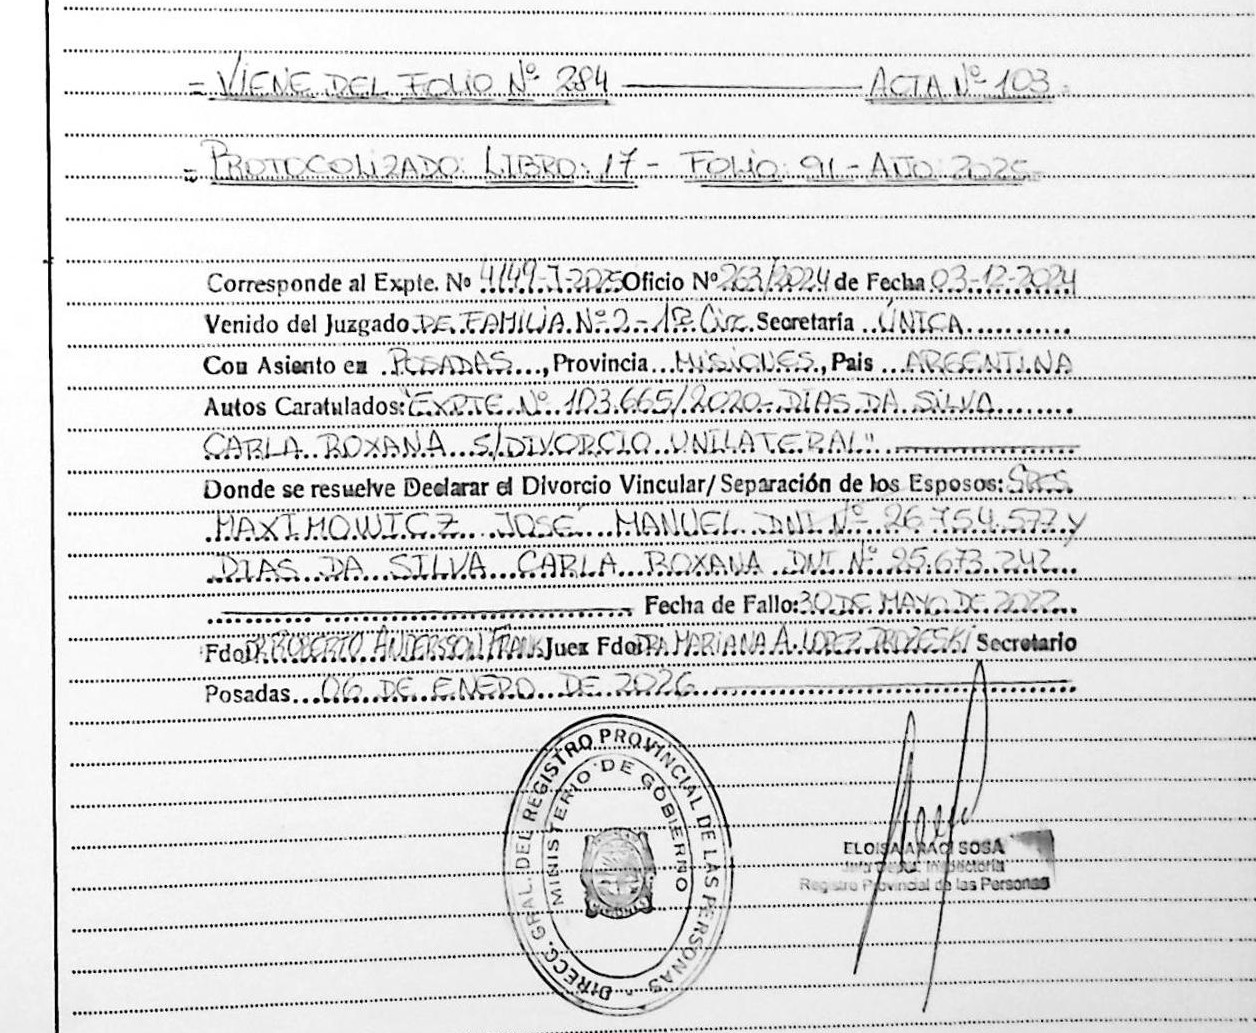 = VIENE DEL FOLIO Nº 284 ——— ACTA Nº 103
= PROTOCOLIZADO: LIBRO: 17 - FOLIO: 91 - AÑO 2025
Corresponde al Expte. Nº 4149-J-2025 Oficio Nº 263/2024 de Fecha 03-12-2024
Venido del Juzgado DE FAMILIA Nº 2 - 1ª Circ. Secretaría ÚNICA
Con Asiento en POSADAS, Provincia MISIONES, Pais ARGENTINA
Autos Caratulados: "EXPTE Nº 103.665/2020 - DIAS DA SILVA
CARLA ROXANA S/DIVORCIO UNILATERAL"
Donde se resuelve Declarar el Divorcio Vincular/ Separación de los Esposos: SRES.
MAXIMOWICZ JOSÉ MANUEL DNI Nº 26.754.577 y
DIAS DA SILVA CARLA ROXANA DNI Nº 25.673.242
Fecha de Fallo: 30 DE MAYO DE 2022
Fdo: DR. ROBERTO ANDERSON FRANK Juez Fdo: DRA MARIANA A. LOPEZ Secretario
Posadas 06 DE ENERO DE 2026
DIRECC. GRAL. DEL REGISTRO PROVINCIAL DE LAS PERSONAS
MINISTERIO DE GOBIERNO
ELOISA ARACI SOSA
Jefa Depto. Inspectoría
Registro Provincial de las Personas